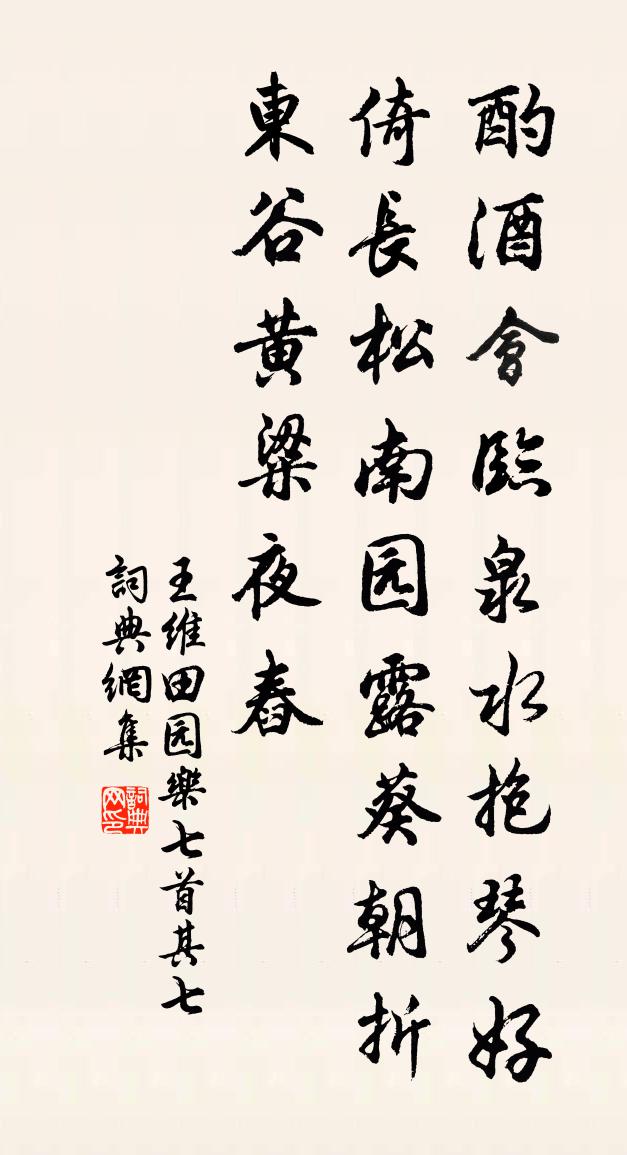 酌酒會臨泉水抱琴好
倚長松南园露葵朝折
東谷黄粱夜舂
王維田园樂七首其七
詞典網集
詞典网印